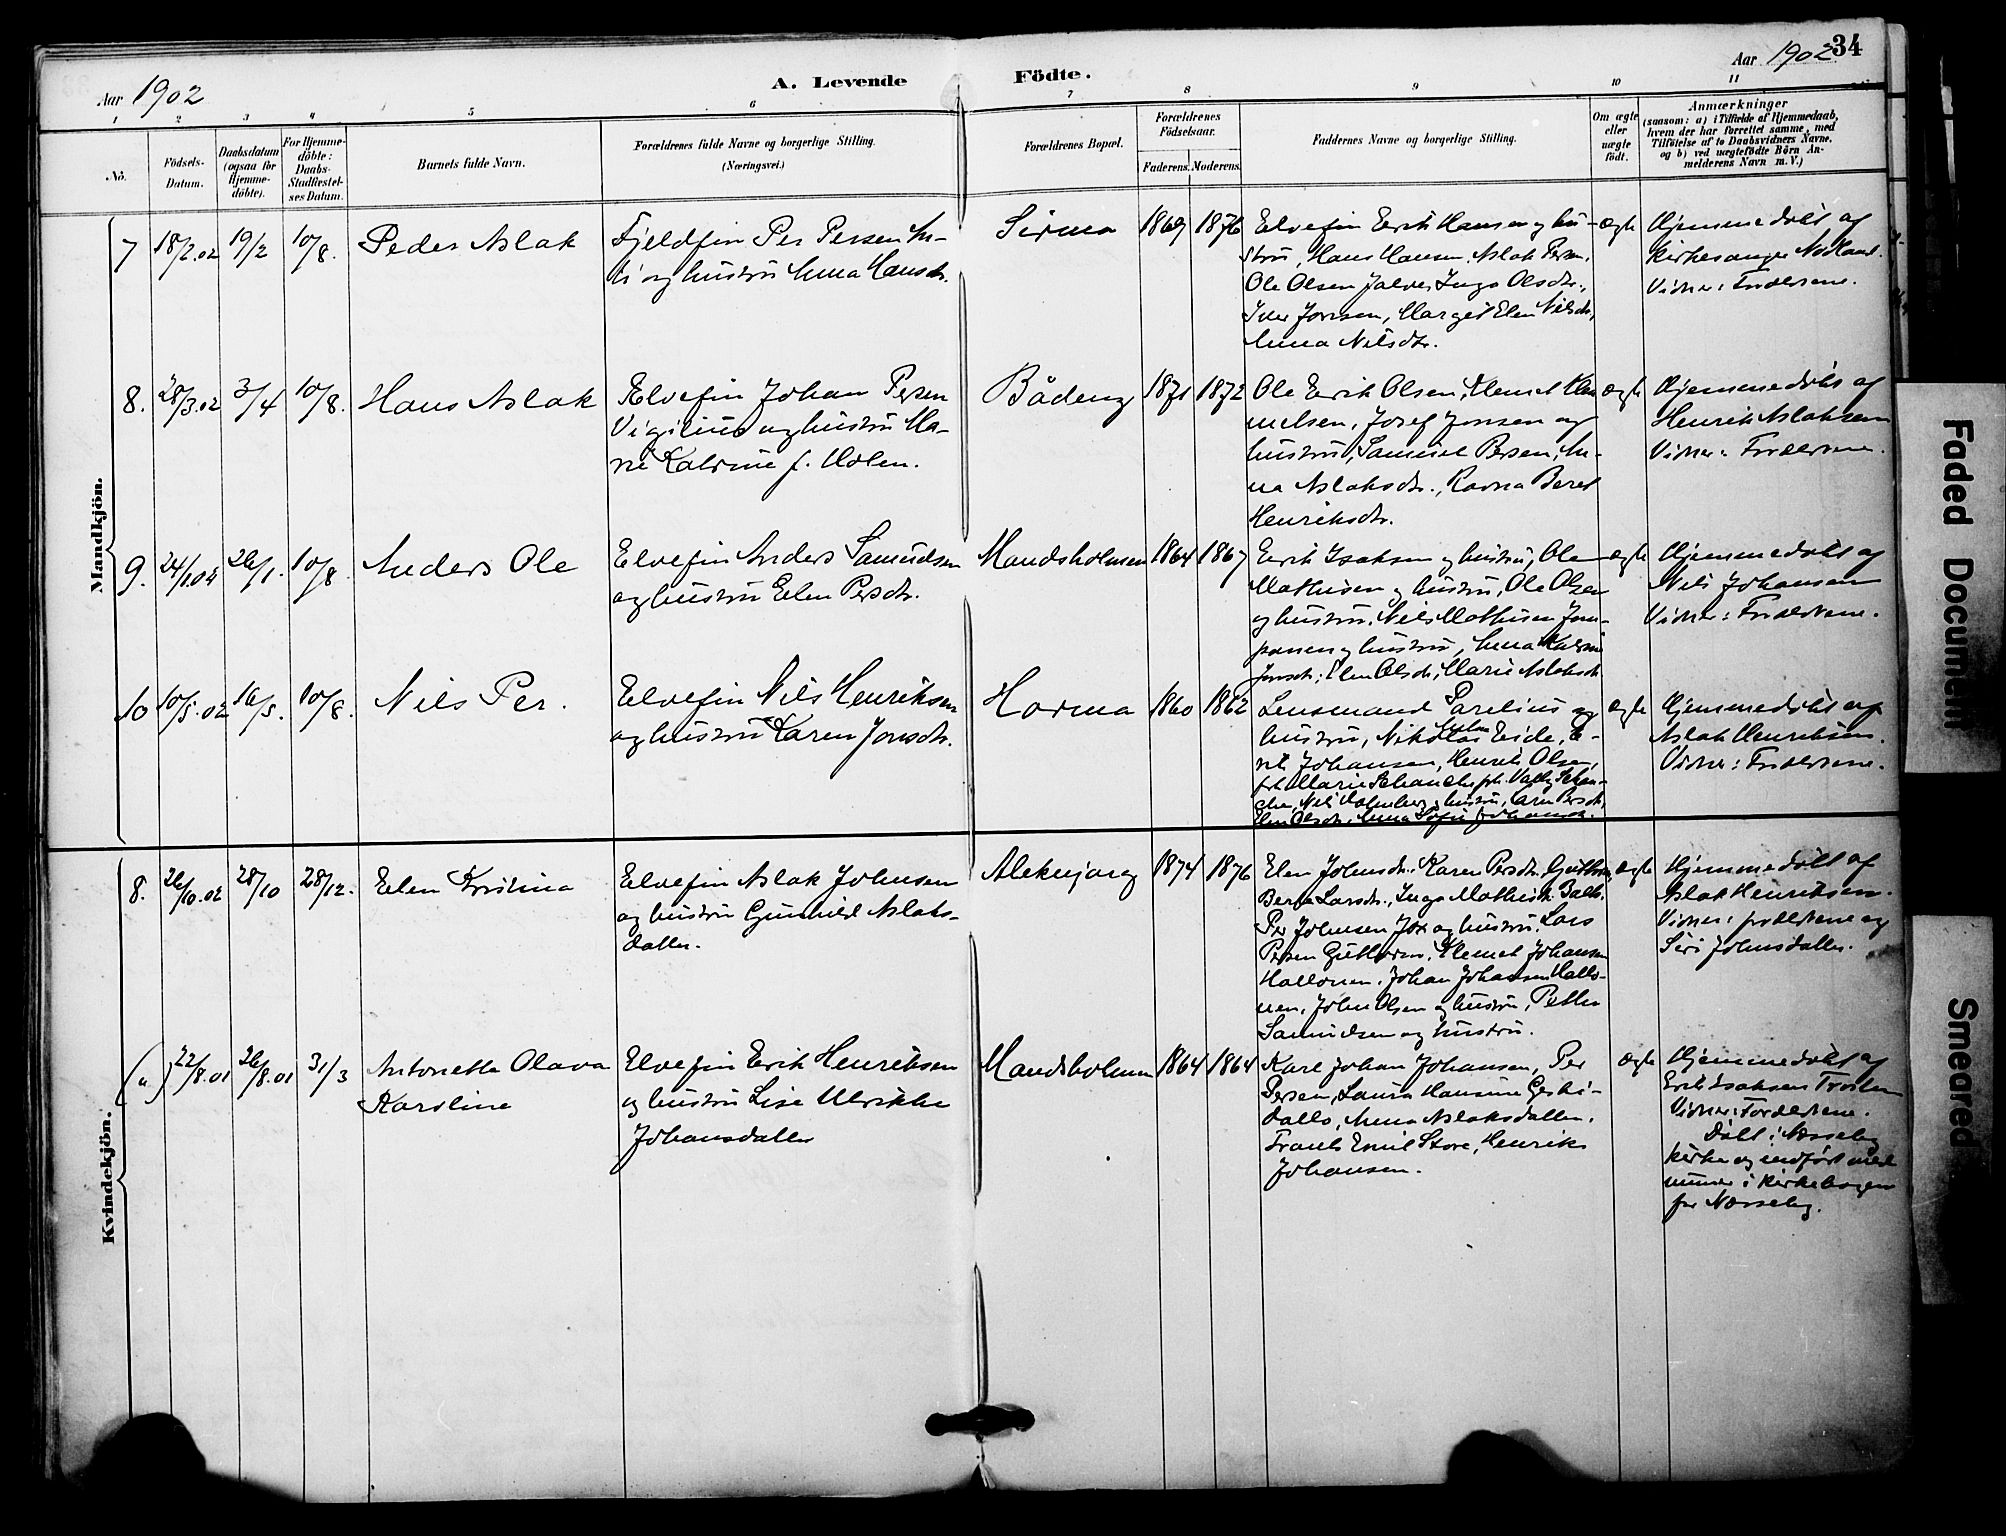 34
Aar 1902
A. Levende Födte.
Aar 1902
1 2 3 4 5 6 7 8 9 10 11
No.
Födsels-Datum.
Daabsdatum (ogsaa for Hjemme-döbte).
For Hjemme-döbte: Daabs-Stadfæstel-ses Datum.
Barnets fulde Navn.
Forældrenes fulde Navne og borgerlige Stilling.
(Næringsvei.)
Forældrenes Bopæl.
Forældrenes Födselsaar.
Faderens. Moderens.
Faddernes Navne og borgerlige Stilling.
Om ægte eller uægte födt.
Anmærkninger
(saasom: a) i Tilfælde af Hjemmedaab,
hvem der har forrettet samme, med
Tilföielse af to Daabsvidners Navne,
og b) ved uægtefödte Börn An-
melderens Navn m. V.)
Mandkjön.
7 18/2.02 19/2 10/8. Peder Aslak
Fjeldfin Per Persen An-
ti og hustru Anna Hansdr.
Sirma 1869 1876
Elvefin Erik Hansen og hu-
stru, Hans Hansen, Aslak Persen,
Ole Olsen Jalve, Inga Olsdtr.,
Iver Jonsen, Marget Elen Nilsdr,
Anna Nilsdtr.
ægte
Hjemmedøbt af
kirkesanger
Vidner: Forældrene.
8. 28/3.02 3/4 10/8. Hans Aslak
Elvefin Johan Persen
Vigilius og hustru Ma-
rie Katrine f. Holm.
Bådeng 1871 1872
Ole Erik Olsen, Klemet Kle-
metsen, Josef Jonsen og
hustru, Samuel Persen, An-
na Aslaksdr., Ravna Beret
Henriksdr.
ægte
Hjemmedøbt af
Henrik Aslaksen
Vidner: Forældrene.
9. 24/1.02 26/1. 10/8. Anders Ole
Elvefin Anders Samuelsen
og hustru Elen Persdr.
Mandsholmen 1864 1867
Erik Isaksen og hustru, Ole
Mathisen og hustru, Ole Olsen
og hustru, Nils Mathisen
og hustru, Anna
Jonsdr., Elen Olsdr., Marie Aslaksdr.
ægte
Hjemmedøbt af
Nils Johansen
Vidner: Forældrene.
10 10/5.02 16/5. 10/8. Nils Per.
Elvefin Nils Henriksen
og hustru Karen Jonsdr.
Horma 1860 1862
Lensmand Parelius og
hustru, Nikolas Eide, E-
rik Johansen, Henrik Olsen,
frk. Marie Schanche, frk. Valby Schan-
che, Nils Holmberg og hustru, Karen Persdr.
Elen Olsdr., Anna Sofie Johansdr.
ægte
Hjemmedøbt af
Aslak Henriksen.
Vidner: Forældrene.
Kvindekjön.
8. 26/10.02 28/10 28/12. Elen Kristina
Elvefin Aslak Johnsen
og hustru Gunhild Aslaks-
datter.
Aleknjarg 1874 1876
Elen Johnsdr., Karen Persdr. Guttorm,
Berit Larsdr., Inga Mathisdr. Balto,
Per Johnsen Fox og hustru, Lars
Persen Guttorm, Klemet Johansen
Hallonen, Johan Johansen Hallo-
nen, John Olsen og hustru, Petter
Samuelsen og hustru.
ægte
Hjemmedøbt af
Aslak Henriksen.
Vidner: forældrene og
Siri Johnsdatter.
22/8.01 26/8.01 31/3 Antonette Olava
Karoline
Elvefin Erik Henriksen
og hustru Lise Ulrikke
Johansdatter
Mandsholmen 1864 1864
Karl Johan Johansen, Per
Persen, Laura Hansine
Anna Aslaksdatter,
Frants Emil Store, Henrik
Johansen.
ægte
Hjemmedøbt af
Erik Isaksen Trosten
Vidner: Forældrene.
Døbt i Næsseby
kirke og indført med
numer i kirkebogen
for Næsseby.
Faded Document
Smeared